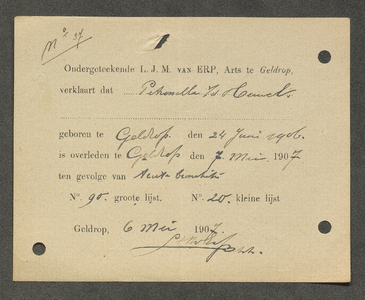 N° 37
Ondergeteekende L. J. M. VAN ERP, Arts te Geldrop,
verklaart dat Petronella
geboren te Geldrop den 24 Juni 1906.
is overleden te Geldrop den 7 Mei 1907
ten gevolge van Acute bronchitis
N°. 90. groote lijst. N°. 20. kleine lijst
Geldrop, 6 Mei 1907